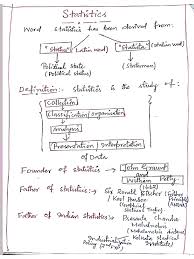 Statistics
Word statistics has been derived from:
"Status" (Latin word) "Statista" (Italian word)
Political state (Statesman)
(Political status)
Definition:- statistics is the study of:
Collection
Classification/organisation
Analysis
Presentation Interpretation
of Data
Founder of statistics → John Graunt and
William Petty
Father of statistics:→ Sir Ronald Fisher
/ Karl Pearson
Father of Indian statistics:→ Prasanta Chandra
Mahalanobis